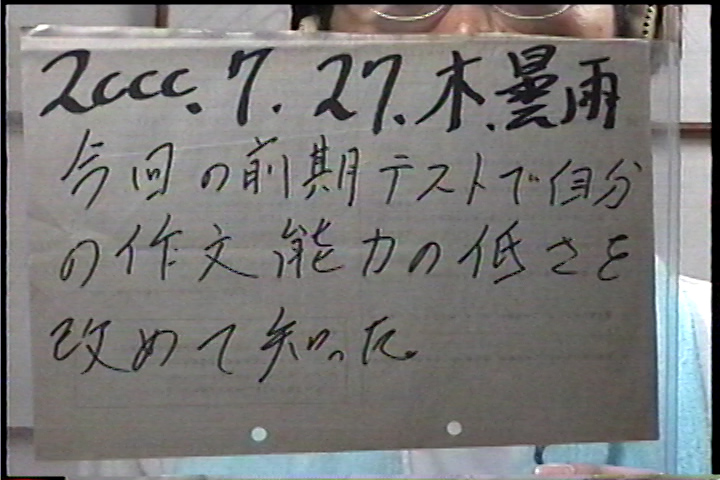 2000.7.27.木.曇雨
今回の前期テストで自分
の作文能力の低さを
改めて知った。